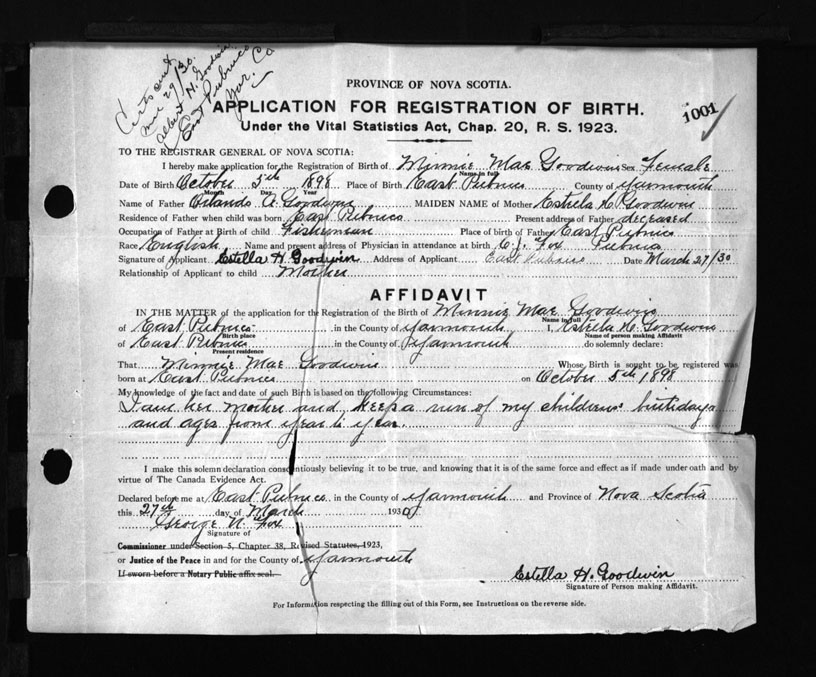 Cert sent
Mar 29/30.
Albert H. Goodwin
East Pubnico
Yar. Co
PROVINCE OF NOVA SCOTIA.
APPLICATION FOR REGISTRATION OF BIRTH.
1001
Under the Vital Statistics Act, Chap. 20, R. S. 1923.
TO THE REGISTRAR GENERAL OF NOVA SCOTIA:
I hereby make application for the Registration of Birth of Minnie Mae Goodwin Sex Female
Name in full
Date of Birth October 5th 1898 Place of Birth East Pubnico County of Yarmouth
Month Day Year
Name of Father Orlando A. Goodwin MAIDEN NAME of Mother Estella H. Goodwin
Residence of Father when child was born East Pubnico Present address of Father deceased
Occupation of Father at Birth of child Fisherman Place of birth of Father East Pubnico
Race English Name and present address of Physician in attendance at birth C. J. Fox Pubnico
Signature of Applicant Estella H. Goodwin Address of Applicant East Pubnico Date March 27/30
Relationship of Applicant to child Mother
AFFIDAVIT
IN THE MATTER of the application for the Registration of the Birth of Minnie Mae Goodwin
Name in full
of East Pubnico in the County of Yarmouth I, Estella H. Goodwin
Birth place Name of person making Affidavit
of East Pubnico in the County of Yarmouth do solemnly declare:
Present residence
That Minnie Mae Goodwin Whose Birth is sought to be registered was
born at East Pubnico on October 5th 1898
My knowledge of the fact and date of such Birth is based on the following Circumstances:
I am her mother and keep a run of my childrens birthdays
and ages from year to year.
I make this solemn declaration conscientiously believing it to be true, and knowing that it is of the same force and effect as if made under oath and by
virtue of The Canada Evidence Act.
Declared before me at East Pubnico in the County of Yarmouth and Province of Nova Scotia
this 27th day of March 1930
George N. Fox
Signature of
Commissioner under Section 5, Chapter 38, Revised Statutes, 1923,
or Justice of the Peace in and for the County of Yarmouth
If sworn before a Notary Public affix seal.
Estella H. Goodwin
Signature of Person making Affidavit.
For Information respecting the filling out of this Form, see Instructions on the reverse side.